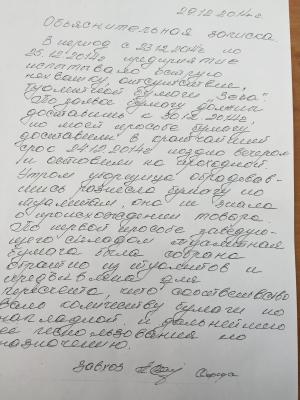 29.12.2014г.
Объяснительная записка
В период с 23.12.14г по
25.12.2014г предприятие
испытывало острую
нехватку, отсутствие,
туалетной бумаги "Зева".
По заявке бумагу должны
доставить к 30.12.2014г.,
по моей просьбе бумагу
доставили в кратчайший
срок 24.12.2014г поздно вечером
и оставили на проходной
Утром уборщица обрадовав-
шись разнесла бумагу по
туалетам, она не знала
о происхождении товара.
По первой просьбе заведую-
щего складом туалетная
бумага была собрана
обратно из туалетов и
предъявлена для
пересчета, что соответствовало
количеству бумаги по
накладной и дальнейшего
ее использования по
назначению.
Завхоз